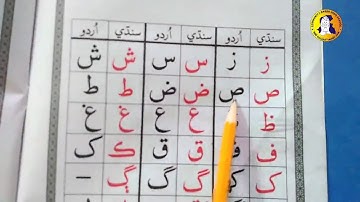 سنڌي اُردو سنڌي اُردو سنڌي اُردو
ز ز س س ش ش
ص ص ض ض ط ط
ظ ع ع غ غ
ف ق ق ڪ ک
ک گ گ ڳ —